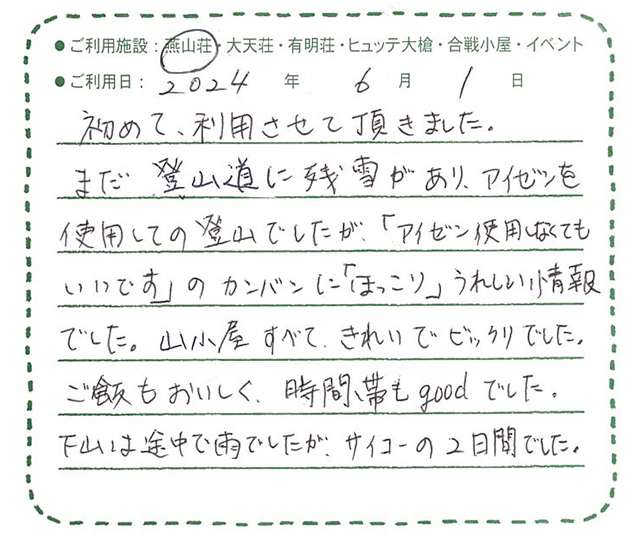 ●ご利用施設：燕山荘・大天荘・有明荘・ヒュッテ大槍・合戦小屋・イベント
●ご利用日： 2024 年 6 月 1 日
初めて、利用させて頂きました。
まだ 登山道に残雪があり、アイゼンを
使用しての登山でしたが、「アイゼン使用しなくても
いいです」の カンバンに「ほっこり」うれしい情報
でした。山小屋 すべて、きれいで ビックリでした。
ご飯もおいしく、時間帯も good でした。
下山は途中で雨でしたが、サイコーの 2日間でした。